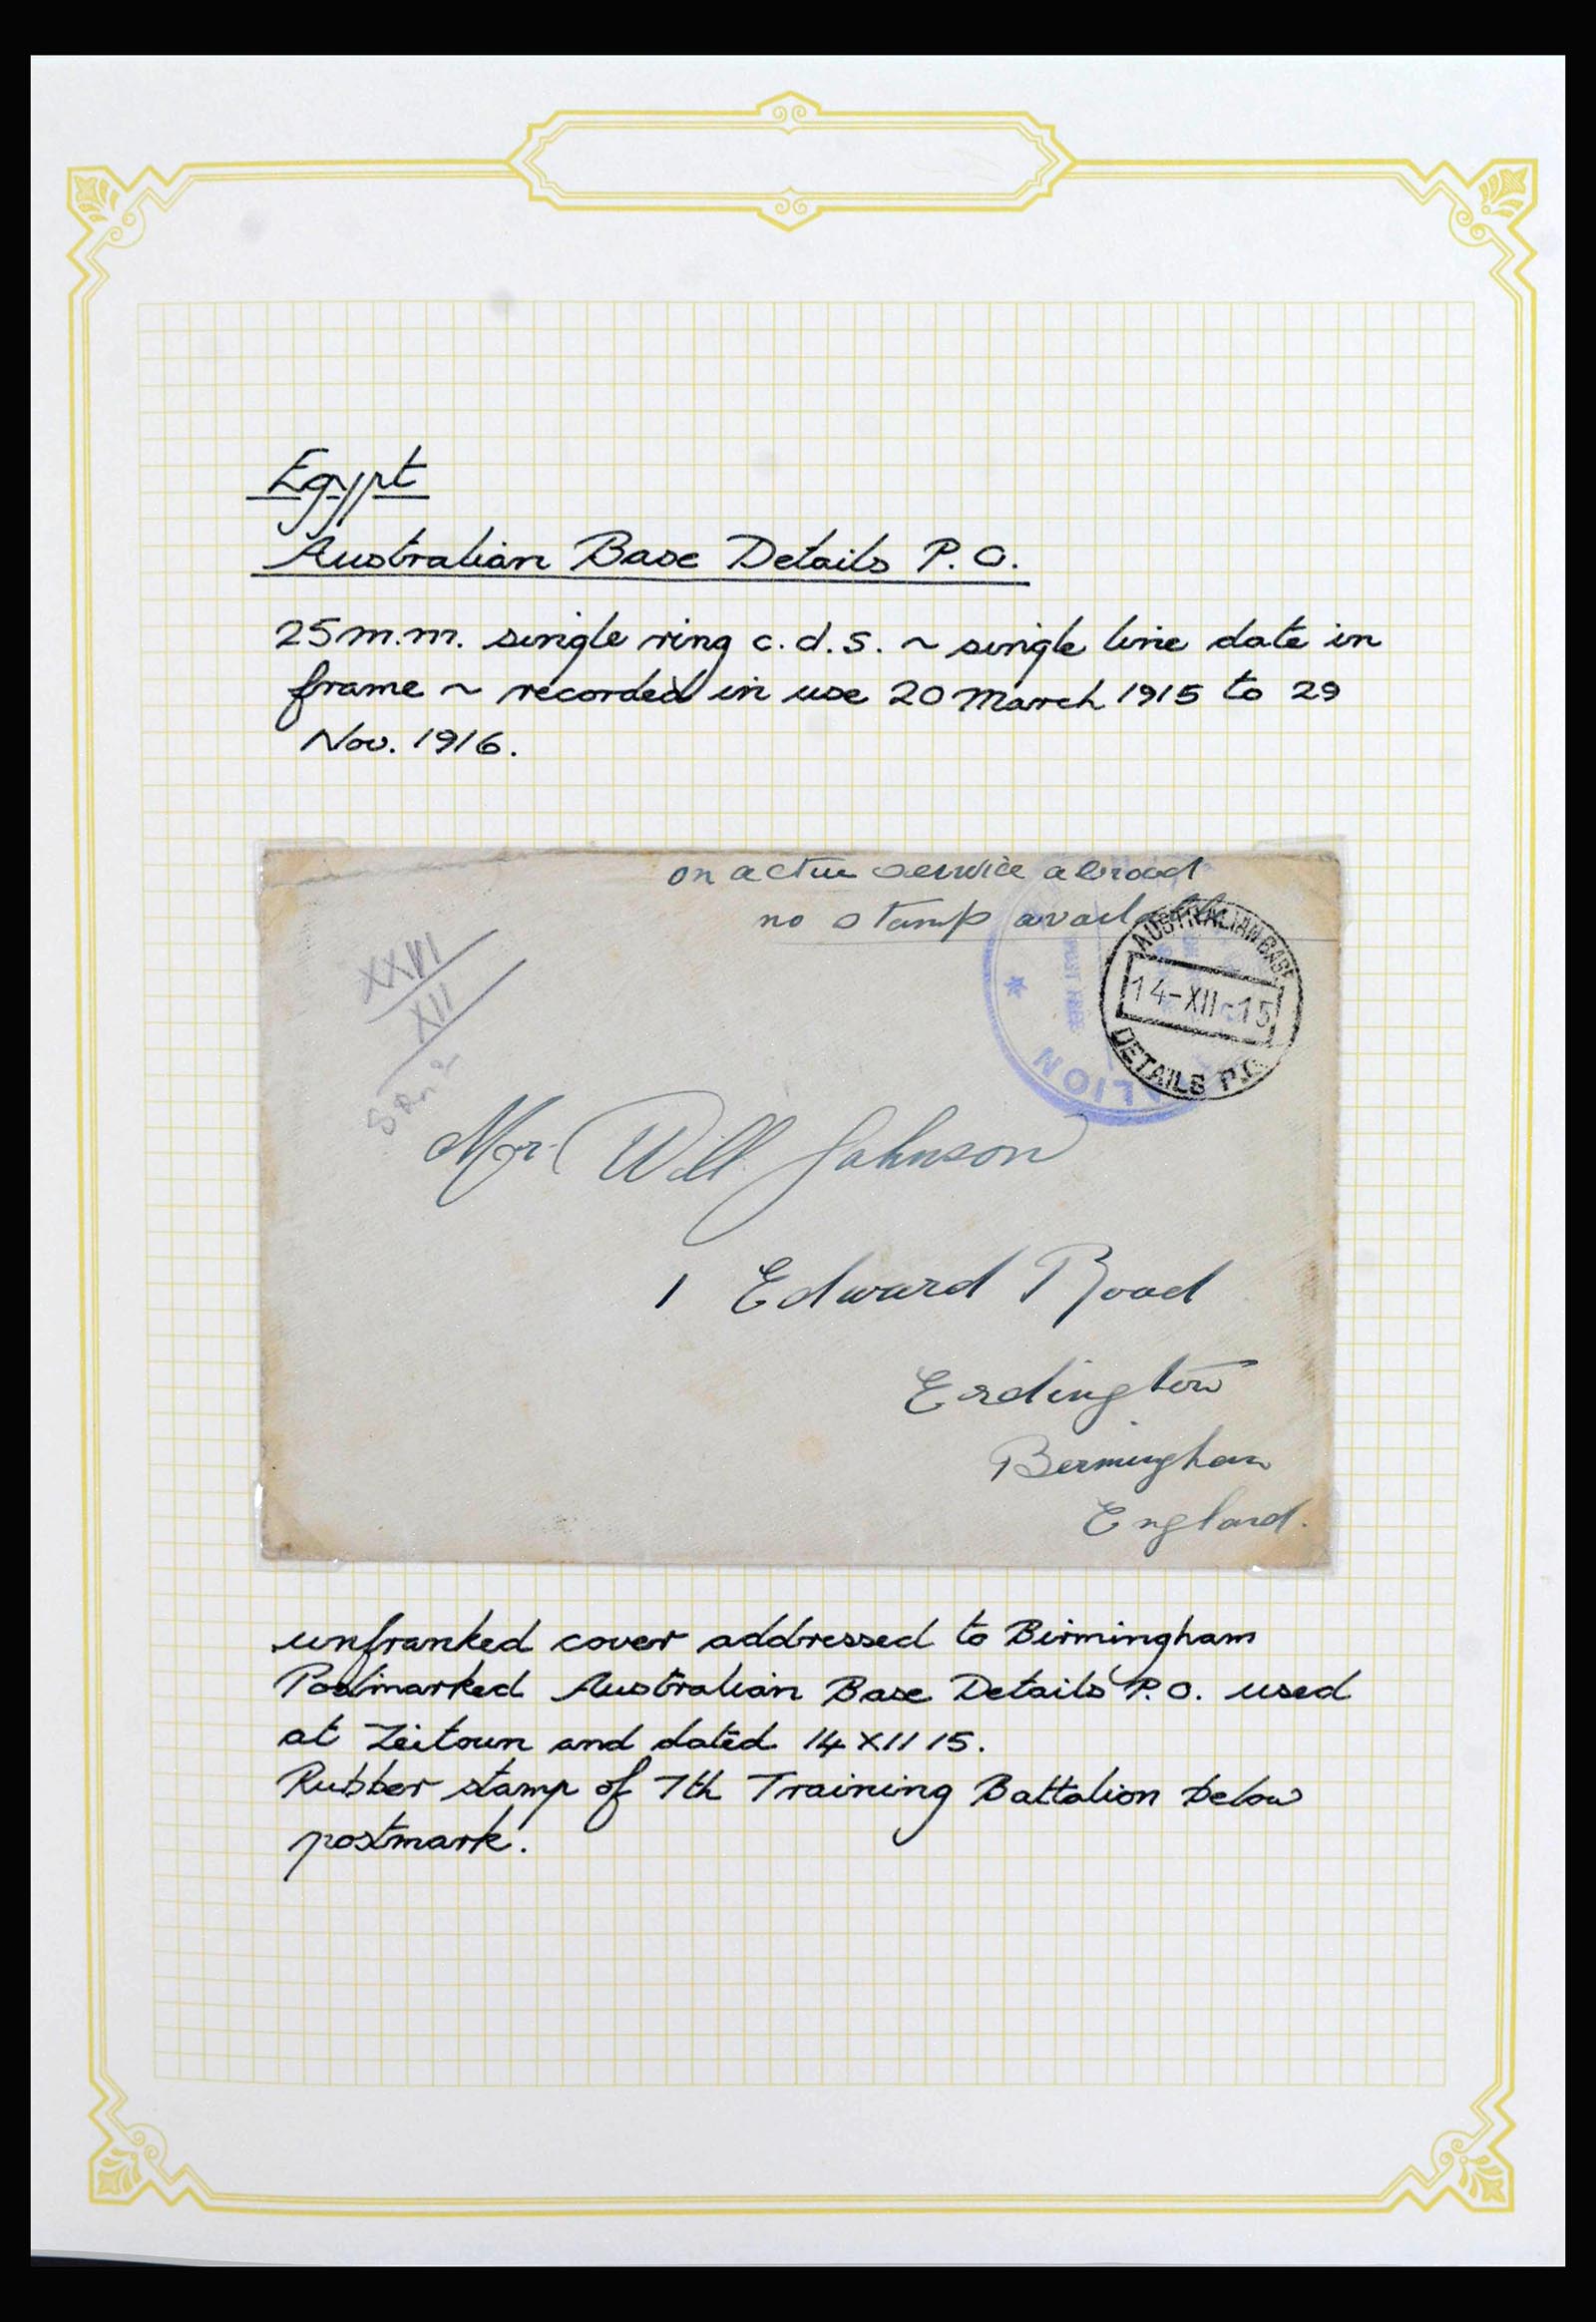 Egypt
Australian Base Details P.O.
25m.m. single ring c.d.s. ~ single line date in
frame ~ recorded in use 20 March 1915 to 29
Nov. 1916.
on active service abroad
no stamp available
AUSTRALIAN BASE
14-XII-15
DETAILS P.O.
ALION
XXVI
XII
Mr. Will Johnson
1 Edward Road
Erdington
Bermingham
England.
unfranked cover addressed to Birmingham
Postmarked Australian Base Details P.O. used
at Zeitoun and dated 14 XII 15.
Rubber stamp of 7th Training Battalion below
postmark.